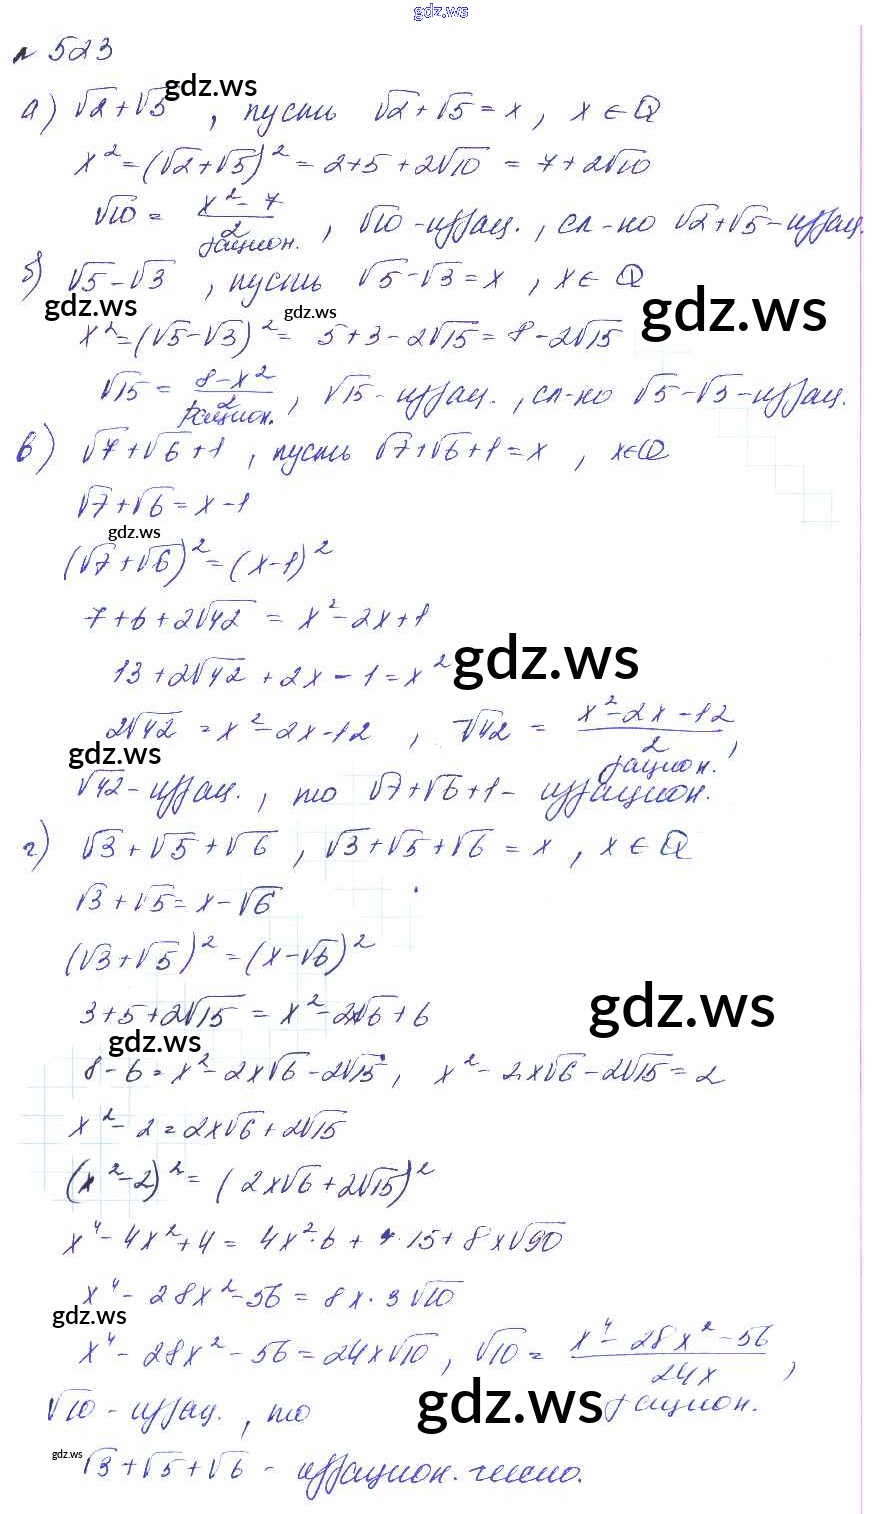 gdz.ws
№ 523
gdz.ws
а) √2+√5 , пусть √2+√5 = x , x ∈ Q
x² = (√2+√5)² = 2+5+2√10 = 7+2√10
√10 = (x²-7)/2 рацион. , √10 - иррац. , сл-но √2+√5 - иррац.
б) √5-√3 , пусть √5-√3 = x , x ∈ Q
gdz.ws gdz.ws gdz.ws
x² = (√5-√3)² = 5+3-2√15 = 8-2√15
√15 = (8-x²)/2 рацион. , √15 - иррац. , сл-но √5-√3 - иррац.
в) √7+√6+1 , пусть √7+√6+1 = x , x∈Q
√7+√6 = x-1
gdz.ws
(√7+√6)² = (x-1)²
7+6+2√42 = x²-2x+1
gdz.ws
13+2√42+2x-1 = x²
2√42 = x²-2x-12 , √42 = (x²-2x-12)/2 рацион. ,
gdz.ws
√42 - иррац. , то √7+√6+1 - иррацион.
г) √3+√5+√6 , √3+√5+√6 = x , x ∈ Q
√3+√5 = x-√6
(√3+√5)² = (x-√6)²
gdz.ws
3+5+2√15 = x²-2x√6+6
gdz.ws
8-6 = x²-2x√6-2√15 , x²-2x√6-2√15 = 2
x²-2 = 2x√6+2√15
(x²-2)² = (2x√6+2√15)²
x⁴-4x²+4 = 4x²·6+4·15+8x√90
x⁴-28x²-56 = 8x·3√10
gdz.ws
x⁴-28x²-56 = 24x√10 , √10 = (x⁴-28x²-56)/24x рацион. ,
gdz.ws
√10 - иррац. , то
gdz.ws
√3+√5+√6 - иррацион. число.